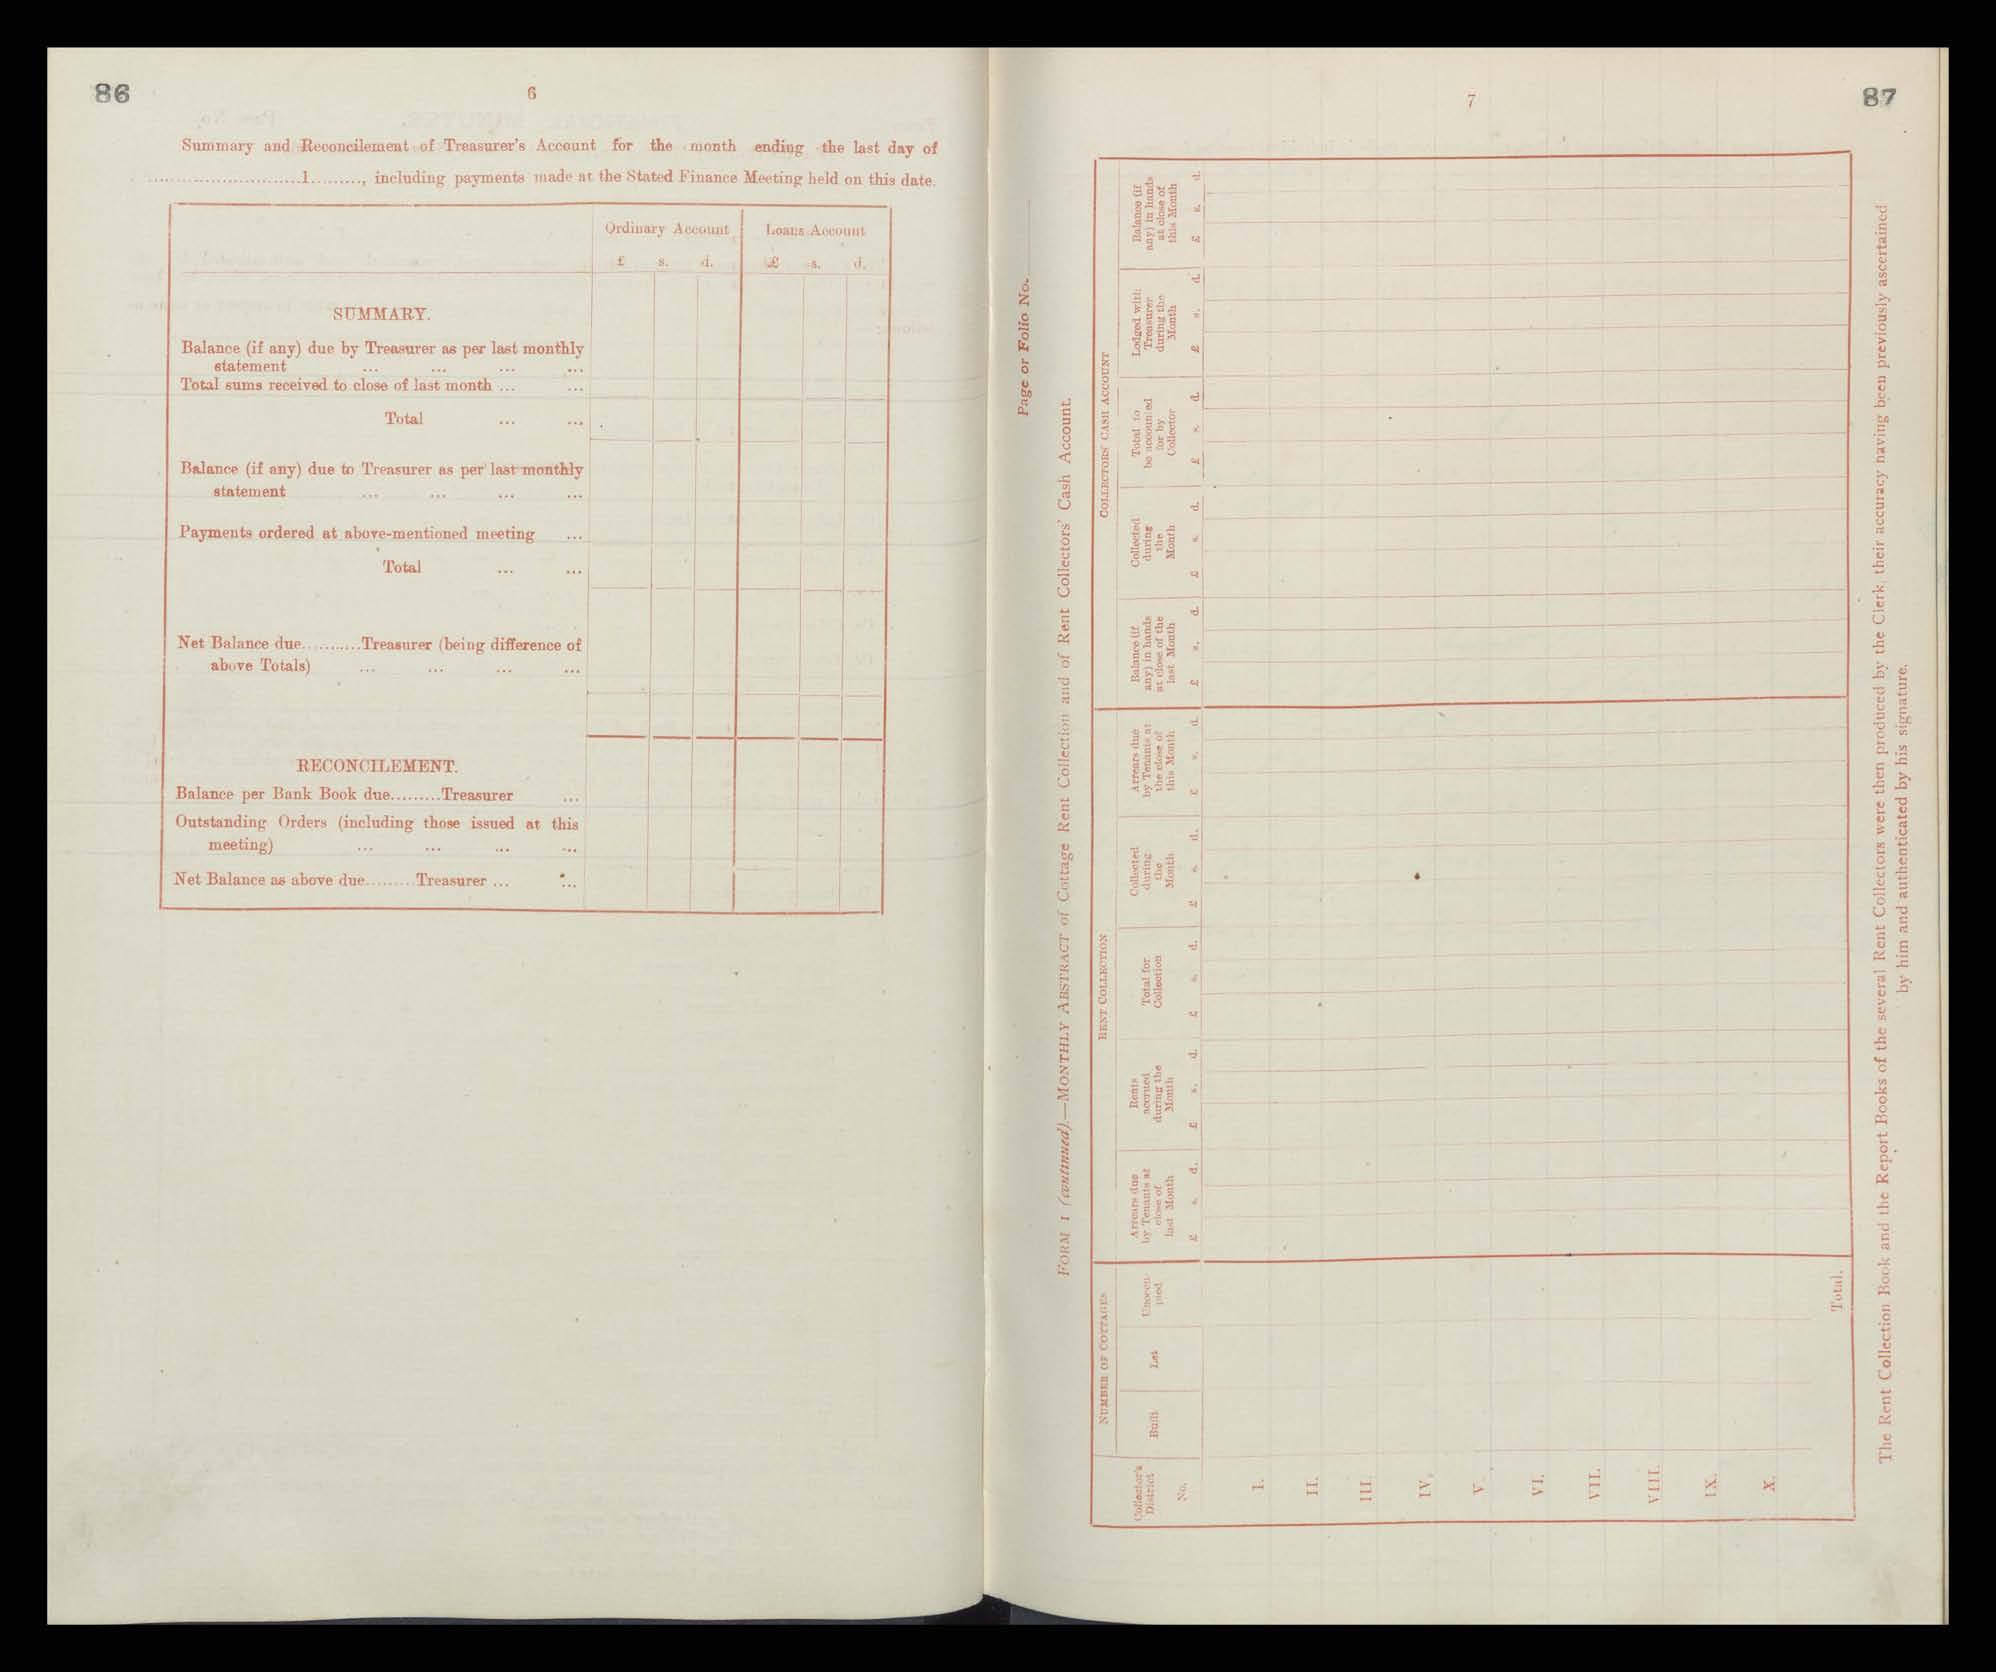 86
6
Summary and Reconcilement of Treasurer's Account for the month ending the last day of
..............................1........., including payments made at the Stated Finance Meeting held on this date.
Ordinary Account
Loans Account
£ s. d. £ s. d.
SUMMARY.
Balance (if any) due by Treasurer as per last monthly
statement ... ... ... ...
Total sums received to close of last month ... ...
Total ... ...
Balance (if any) due to Treasurer as per last monthly
statement ... ... ... ...
Payments ordered at above-mentioned meeting ...
Total ... ...
Net Balance due...........Treasurer (being difference of
above Totals) ... ... ... ...
RECONCILEMENT.
Balance per Bank Book due.........Treasurer ...
Outstanding Orders (including those issued at this
meeting) ... ... ... ...
Net Balance as above due.........Treasurer ... ...
7
87
Page or Folio No.
FORM 1 (continued).—MONTHLY ABSTRACT of Cottage Rent Collection and of Rent Collectors' Cash Account.
NUMBER OF COTTAGES
RENT COLLECTION
COLLECTORS' CASH ACCOUNT
Collector's
District
No.
Built
Let
Unoccu-
pied
Arrears due
by Tenants at
close of
last Month
£ s. d.
Rents
accrued
during the
Month
£ s. d.
Total for
Collection
£ s. d.
Collected
during
the
Month
£ s. d.
Arrears due
by Tenants at
the close of
this Month
£ s. d.
Balance (if
any) in hands
at close of the
last Month
£ s. d.
Collected
during
the
Month
£ s. d.
Total to
be accounted
for by
Collector
£ s. d.
Lodged with
Treasurer
during the
Month
£ s. d.
Balance (if
any) in hands
at close of
this Month
£ s. d.
I.
II.
III.
IV.
V.
VI.
VII.
VIII.
IX.
X.
Total.
The Rent Collection Book and the Report Books of the several Rent Collectors were then produced by the Clerk, their accuracy having been previously ascertained
by him and authenticated by his signature.